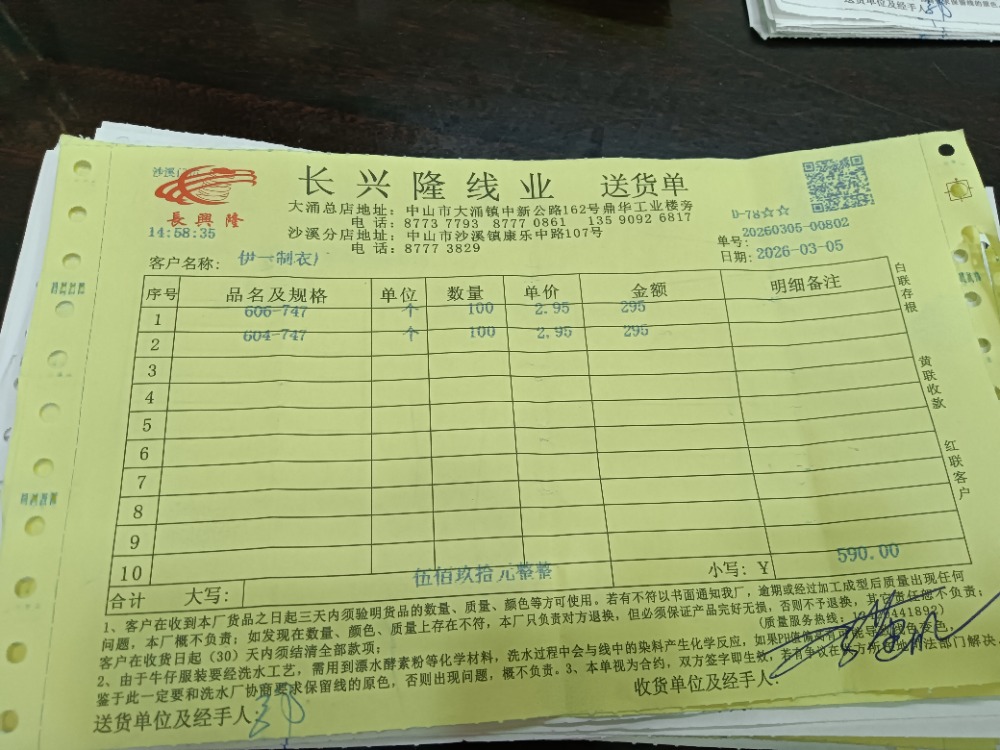 送货单位及经手人
沙溪门
長興隆
14:58:35
长兴隆线业 送货单
大涌总店地址：中山市大涌镇中新公路162号鼎华工业楼旁
电 话：8773 7793 8777 0861 135 9092 6817
沙溪分店地址：中山市沙溪镇康乐中路107号
电 话：8777 3829
D-78☆☆
单号：20260305-00802
日期：2026-03-05
客户名称：伊一制衣厂
序号 品名及规格 单位 数量 单价 金额 明细备注
1 606-747 个 100 2.95 295
2 604-747 个 100 2.95 295
3
4
5
6
7
8
9
10
合计 大写：伍佰玖拾元整整 小写：￥ 590.00
白联存根
黄联收款
红联客户
1、客户在收到本厂货品之日起三天内须验明货品的数量、质量、颜色等方可使用。若有不符以书面通知我厂，逾期或经过加工成型后质量出现任何
问题，本厂概不负责；如发现在数量、颜色、质量上存在不符，本厂只负责对方退换，但必须保证产品完好无损，否则不予退换，其它责任概不负责；
客户在收货日起（30）天内须结清全部款项；（质量服务热线：
2、由于牛仔服装要经洗水工艺，需用到漂水酵素粉等化学材料，洗水过程中会与线中的染料产生化学反应，如果PH值偏高有可能导致线色变色，
鉴于此一定要和洗水厂协商要求保留线的原色，否则出现问题，概不负责。3、本单视为合约，双方签字即生效，若有争议在
送货单位及经手人：
收货单位及经手人：